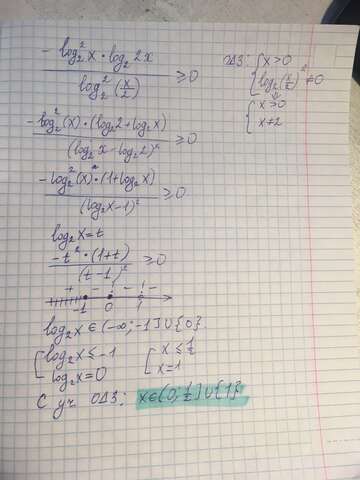 -log₂²x·log₂2x / log₂²(x/2) ≥0
ОДЗ: { x>0
log₂(x/2)² ≠0
⇓
{ x>0
x≠2
-log₂²(x)·(log₂2+log₂x) / (log₂x-log₂2)² ≥0
-log₂²(x)·(1+log₂x) / (log₂x-1)² ≥0
log₂x=t
-t²·(1+t) / (t-1)² ≥0
+ - - -
-1 0 1
log₂x∈(-∞;-1]∪{0}.
[ log₂x≤-1 [ x≤1/2
log₂x=0 x=1
С уч ОДЗ: x∈(0;1/2]∪{1}